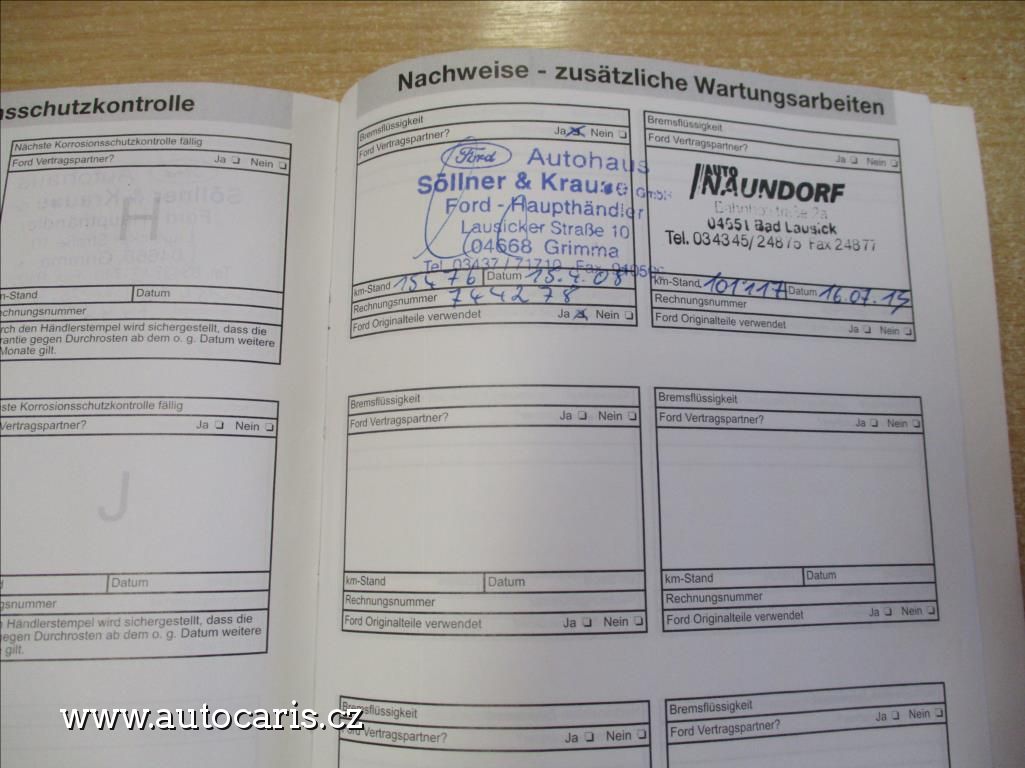 nsschutzkontrolle
Nächste Korrosionsschutzkontrolle fällig
Ford Vertragspartner? Ja ❑ Nein ❑
H
km-Stand Datum
Rechnungsnummer
Durch den Händlerstempel wird sichergestellt, dass die
Garantie gegen Durchrosten ab dem o. g. Datum weitere
Monate gilt.
Nächste Korrosionsschutzkontrolle fällig
Vertragspartner? Ja ❑ Nein ❑
J
Datum
gsnummer
Händlerstempel wird sichergestellt, dass die
gegen Durchrosten ab dem o. g. Datum weitere
gilt.
Nachweise - zusätzliche Wartungsarbeiten
Bremsflüssigkeit
Ford Vertragspartner? Ja ☒ Nein ❑
Ford Autohaus
Söllner & Krause GmbH
Ford - Haupthändler
Lausicker Straße 10
04668 Grimma
Tel. 03437/71710 Fax
km-Stand 15476 Datum 15.4.08
Rechnungsnummer 744278
Ford Originalteile verwendet Ja ☒ Nein ❑
Bremsflüssigkeit
Ford Vertragspartner? Ja ❑ Nein ❑
AUTO
NAUNDORF
Bahnhofstraße 2a
04651 Bad Lausick
Tel. 034345/24875 Fax 24877
km-Stand 101'117 Datum 16.07.15
Rechnungsnummer
Ford Originalteile verwendet Ja ❑ Nein ❑
Bremsflüssigkeit
Ford Vertragspartner? Ja ❑ Nein ❑
km-Stand Datum
Rechnungsnummer
Ford Originalteile verwendet Ja ❑ Nein ❑
Bremsflüssigkeit
Ford Vertragspartner? Ja ❑ Nein ❑
km-Stand Datum
Rechnungsnummer
Ford Originalteile verwendet Ja ❑ Nein ❑
Bremsflüssigkeit
Ford Vertragspartner? Ja ❑ Nein ❑
Bremsflüssigkeit
Ford Vertragspartner? Ja ❑ Nein ❑
www.autocaris.cz